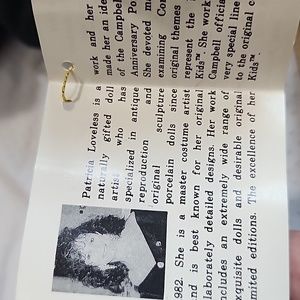 Patricia Loveless is a
naturally gifted doll
artist who has
specialized in antique
reproduction and
original sculpture
porcelain dolls since
982. She is a master costume artist
nd is best known for her original
laborately detailed designs. Her work
ncludes an extremely wide range of
xquisite dolls and desirable original
mited editions. The excellence of her
work and her
made her an ide
of the Campbell
Anniversary Po
She devoted m
examining Co
original themes
represent the
Kids™ She work
Campbell offici
very special line
to the original c
Kids™